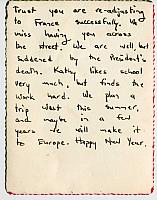 Trust you are re-adjusting
to France successfully. We
miss having you across
the street. We are well, but
saddened by the President's
death. Kathy likes school
very much, but finds the
work hard. We plan a
trip West this summer,
and maybe in a few
years we will make it
to Europe. Happy New Year.